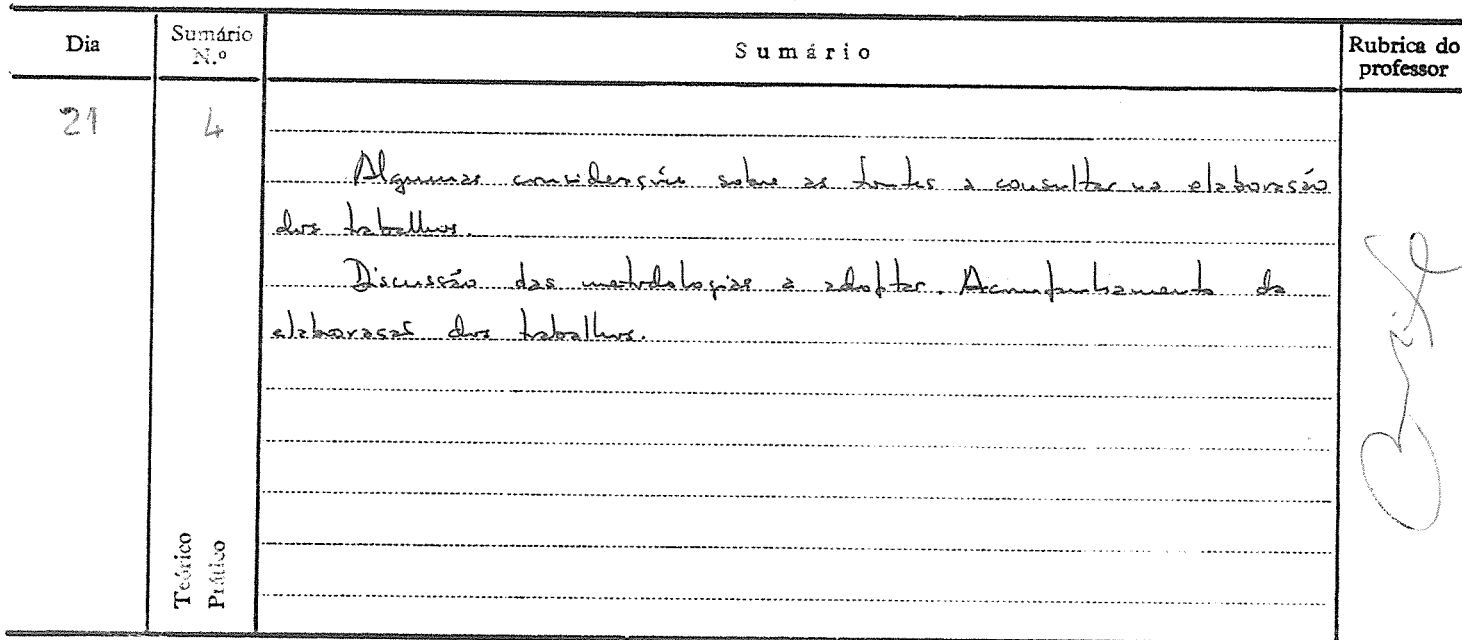 Dia
Sumário
N.º
Sumário
Rubrica do
professor
21
4
Algumas considerações sobre as fontes a consultar na elaboração
dos trabalhos.
Discussão das metodologias a adoptar. Acompanhamento da
elaboração dos trabalhos.
Teórico
Prático